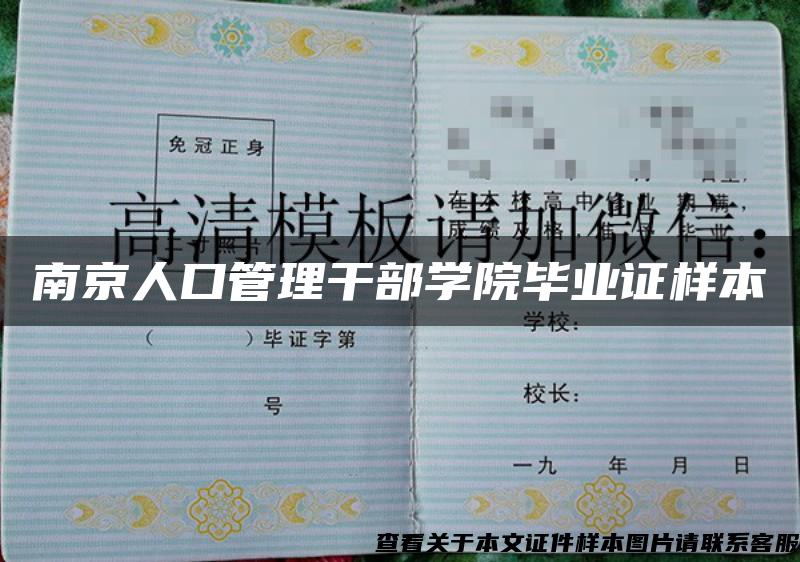 免冠正身
二寸照片
日至,
在本校高中修业期满,
成绩及格,准予毕业。
高清模板请加微信:
南京人口管理干部学院毕业证样本
( )毕证字第
号
学校:
校长:
一九 年 月 日
查看关于本文证件样本图片请联系客服